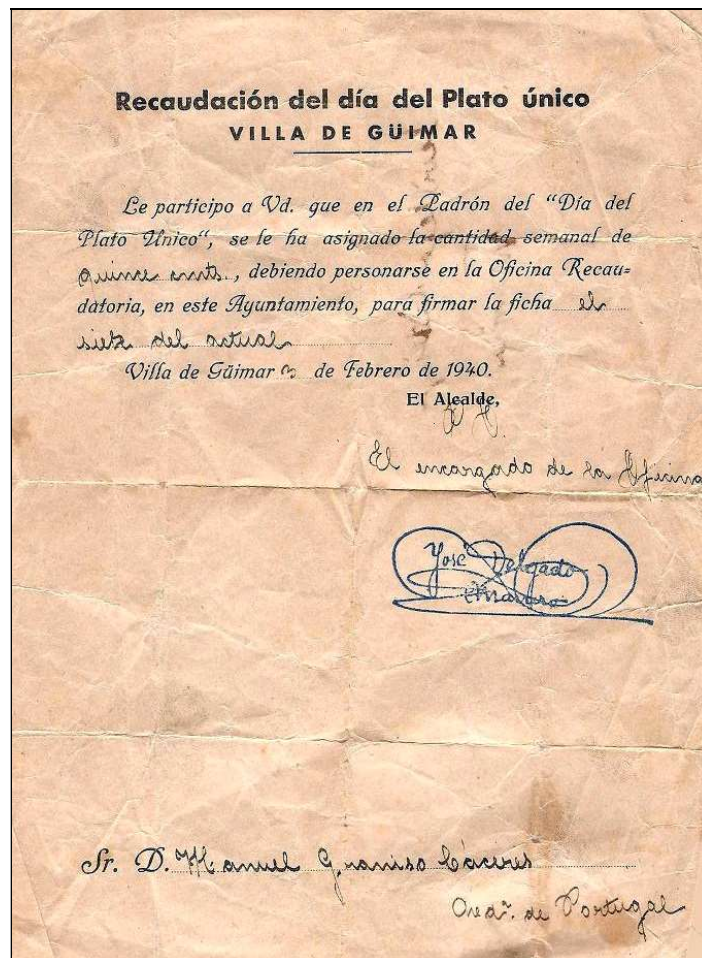 Recaudación del día del Plato único
VILLA DE GÜIMAR
Le participo a Vd. que en el Padrón del "Día del
Plato Único", se le ha asignado la cantidad semanal de
quince cnts., debiendo personarse en la Oficina Recau-
datoria, en este Ayuntamiento, para firmar la ficha el
siete del actual
Villa de Güimar 3 de Febrero de 1940.
El Alcalde,
El encargado de la Oficina
José Delgado
Sr. D. Manuel Cáceres
de Portugal